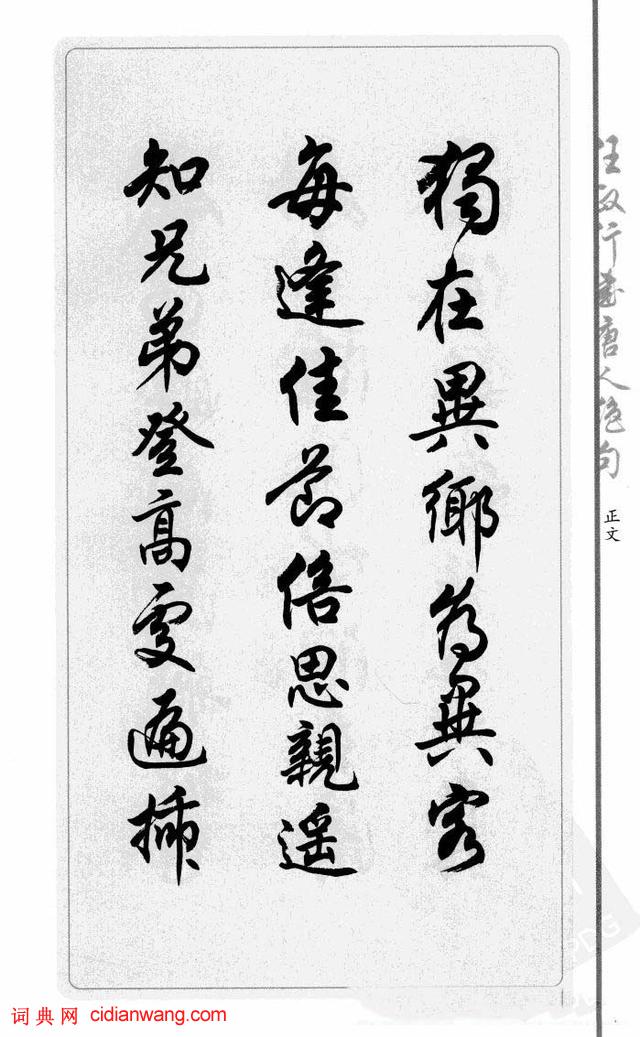 獨在異鄉為異客
每逢佳節倍思親遥
知兄弟登高處遍插
任政行書唐人絕句
正文
词典网 cidianwang.com